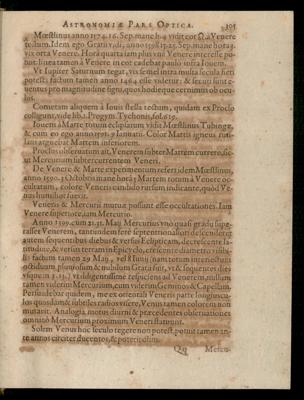 ASTRONOMIÆ PARS OPTICA. 305
Mœstlinus anno 1574. 16. Sep. mane h. 4 vidit cor ♌ à Venere
tectum. Idem ego Gratii vidi, anno 1598. 15. 25. Sep. mane hora 3.
vix orta Venere. Hora quarta iam plus vna Venere interesse po-
tuit: linea tamen à Venere in cor cadebat paulò infra Iouem.
Vt Iupiter Saturnum tegat, vix fieri intra multa secula
potest; factum tamen anno 1464 esse videtur: & fecuti sunt e-
uentus pro magnitudine signi, quos hodieque cernimus ob ocu-
los.
Cometam aliquem à Iouis stella tectum, quidam ex Proclo
colligunt, vide lib. 1. Progym. Tychonis, fol.
Iouem à Marte totum eclipsarum vidit Mœstlinus Tubingæ,
& cum eo ego anno 1591. 9 Ianuarii. Color Martii igneus rut-
ilans arguebat Martem inferiorem.
Proclus obseruatum ait, Venerem subter Martem currere, sic-
ut Mercurium subter currentem Veneri.
De Venere & Marte experimentum refert idem Mœstlinus,
anno 1590. 3 Octobris mane hora 5 Martem totum à Venere oc-
cultatum, colore Veneris candido rursum indicante, quòd Ve-
nus humilior fuerit.
Veneris & Mercurii mutuæ possunt esse occultationes. Iam
Venere superiore, iam Mercurio.
Anno 1599. cum 21. 31. Maij Mercurius vno quasi gradu supe-
rasset Venerem, tantundem ferè septentrionalior: descenderet
autem sequentibus diebus & versus Eclipticam, decrescente la-
titudine, & versus terram in Epicyclo, crescente diametro: visus
factum tamen 29 Maij, vel 8 Iunij (nam totum interstitium
occiduum pluuiosum & nubilum Gratii fuit, vt & sequentes dies
vsque in 3. 13.) vt diligentissimè respiciens ad Venerem, nullum
tamen viderim Mercurium, cum viderim Geminos & Capellam.
Persuadebar quidem, me ex orientali Veneris parte longiuscu-
los quosdam & subtiles radios videre, Venus tamen colorem non
mutauit. Analogia, motus diurni & præcedentes obseruationes
omninò Mercurium proximum Veneri statuunt.
Solem Venus hoc seculo tegere non potest, potuit tamen an-
te annos circiter ducentos, & poterit olim.
Qq Mercu-